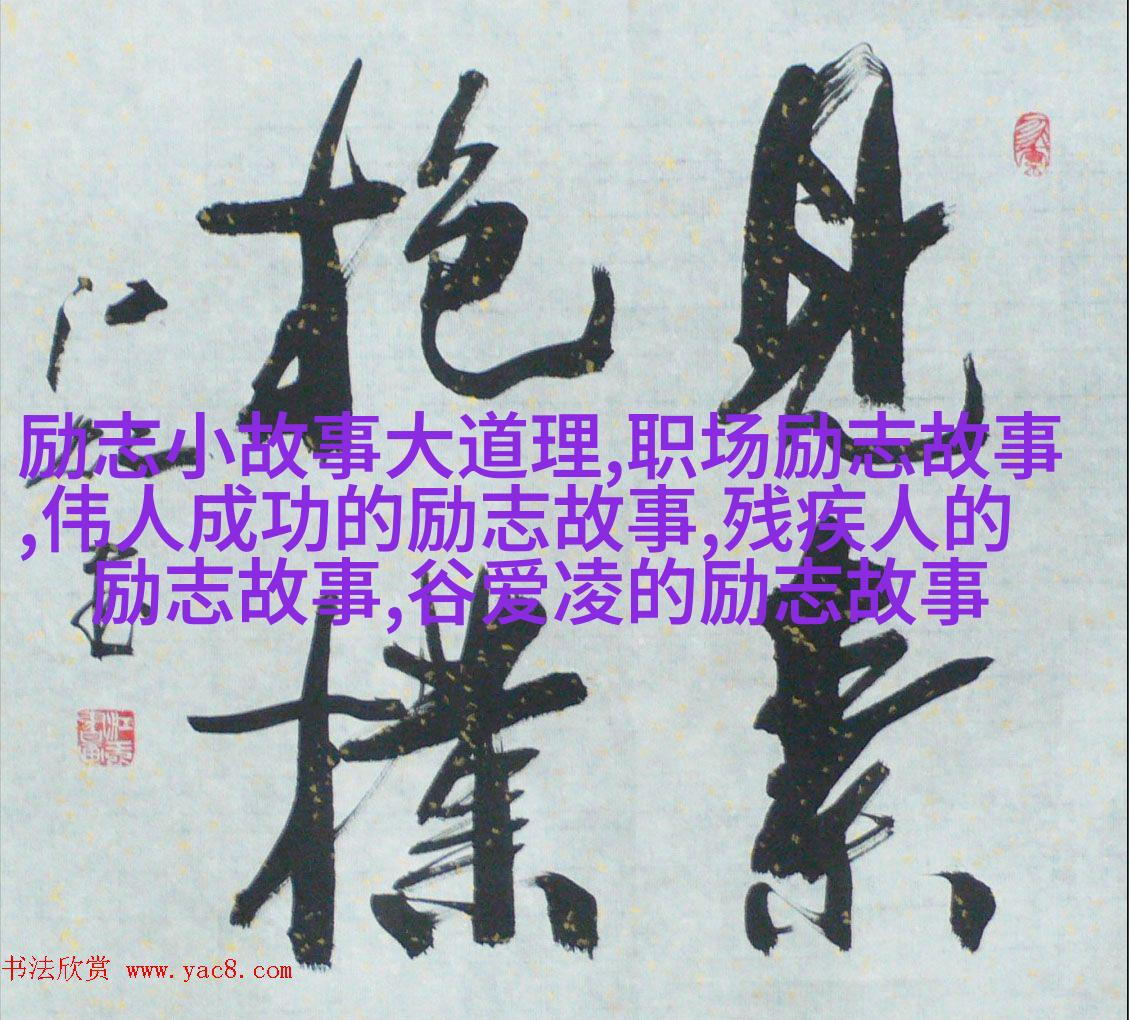 見素
抱樸
励志小故事大道理,职场励志故事
,伟人成功的励志故事,残疾人的
励志故事,谷爱凌的励志故事
书法欣赏 www.yac8.com